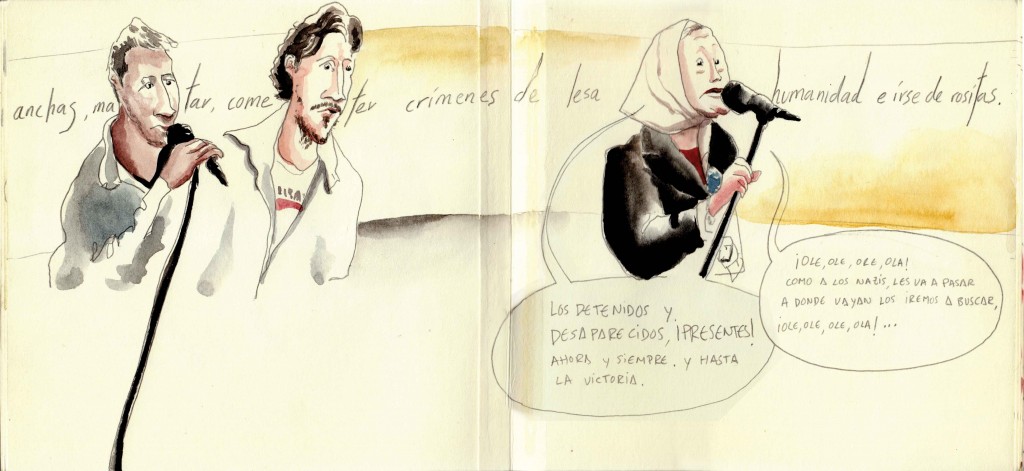 anchas, matar, cometer crímenes de lesa humanidad e irse de rositas.
LOS DETENIDOS Y
DESAPARECIDOS, ¡PRESENTES!
AHORA Y SIEMPRE. Y HASTA
LA VICTORIA.
¡OLE, OLE, OLE, OLA!
COMO A LOS NAZIS, LES VA A PASAR
A DONDE VAYAN LOS IREMOS A BUSCAR,
¡OLE, OLE, OLE, OLA!...